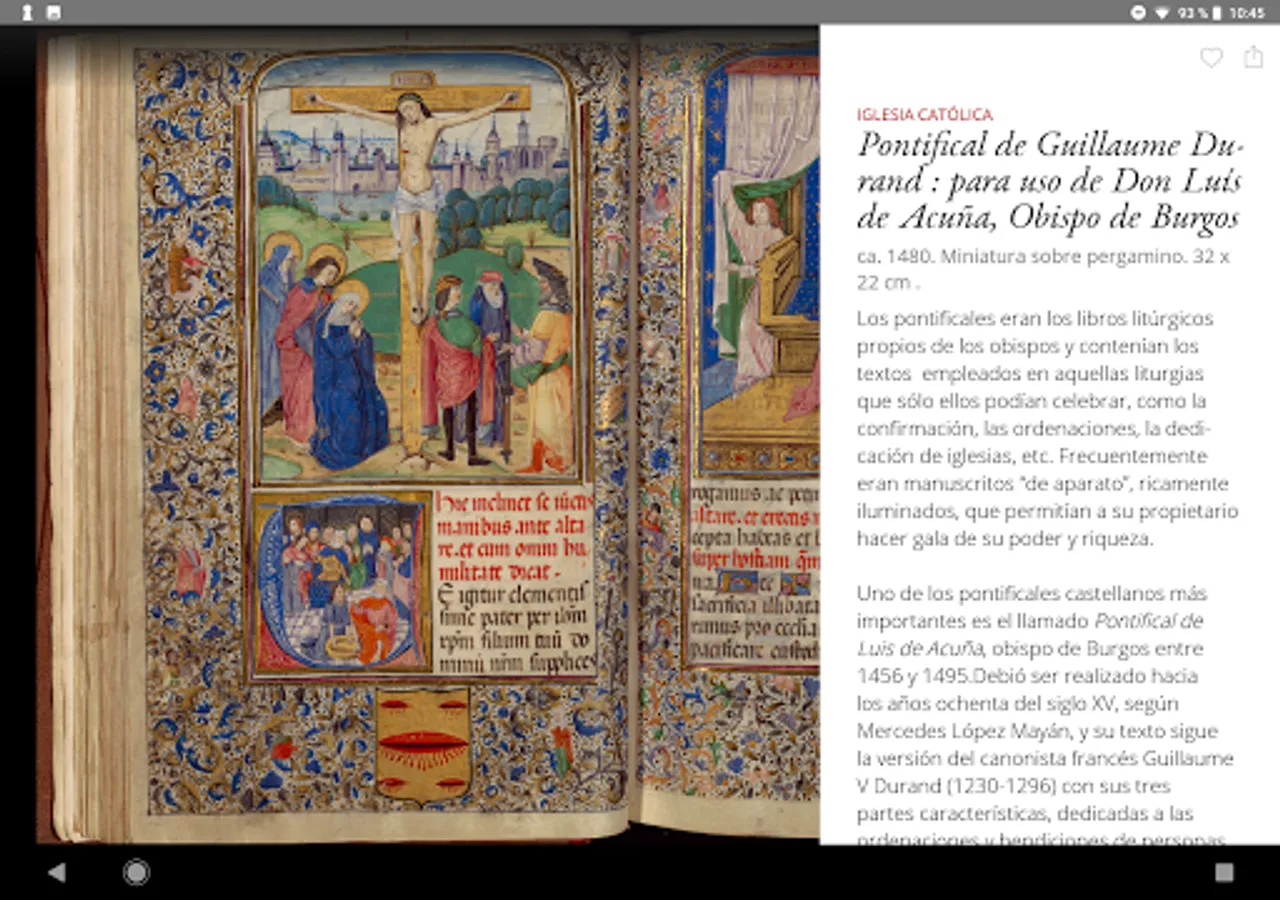 93 % 10:45
IGLESIA CATÓLICA
Pontifical de Guillaume Du-
rand : para uso de Don Luis
de Acuña, Obispo de Burgos
ca. 1480. Miniatura sobre pergamino. 32 x
22 cm .
Los pontificales eran los libros litúrgicos
propios de los obispos y contenían los
textos empleados en aquellas liturgias
que sólo ellos podían celebrar, como la
confirmación, las ordenaciones, la dedi-
cación de iglesias, etc. Frecuentemente
eran manuscritos “de aparato”, ricamente
iluminados, que permitían a su propietario
hacer gala de su poder y riqueza.
Uno de los pontificales castellanos más
importantes es el llamado Pontifical de
Luis de Acuña, obispo de Burgos entre
1456 y 1495.Debió ser realizado hacia
los años ochenta del siglo XV, según
Mercedes López Mayán, y su texto sigue
la versión del canonista francés Guillaume
V Durand (1230-1296) con sus tres
partes características, dedicadas a las
ordenaciones y bendiciones de personas
manibus ante alta
re. et cum omni hu
militate dicat.
E igitur clementis
sime pater per
filium tuū
supplices